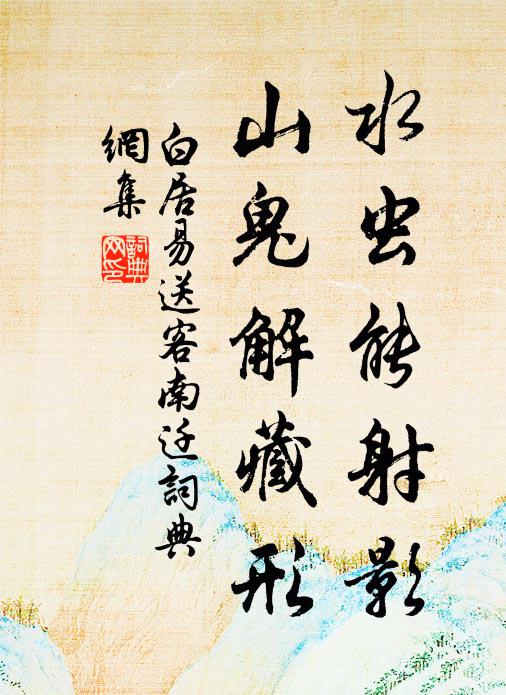 水虫能射影
山鬼解藏形
白居易送客南迁詞典
網集
詞典
网印